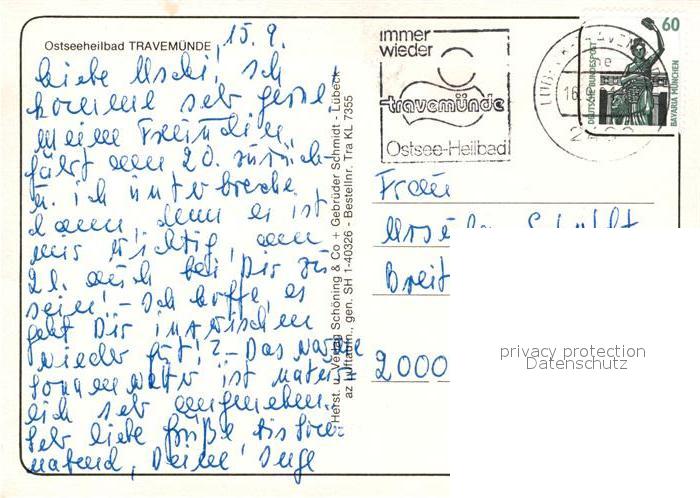 Ostseeheilbad TRAVEMÜNDE
15.9.
Liebe Uschi, ich
komme sehr gerne.
Meine Freundin
fährt am 20. zurück
u. ich unterbreche
dann, denn es ist
mir wichtig, am
21. auch bei Dir zu
sein! – Ich hoffe, es
geht Dir inzwischen
wieder gut!? – Das warme
Sonnenwetter ist natür-
lich sehr angenehm.
Sehr liebe Grüße bis Sonn-
abend, Deine Inge
Herst. u. Verlag Schöning & Co + Gebrüder Schmidt - Lübeck
az Luftaufn., gen. SH 1-40326 - Bestellnr. Tra KL 7355
immer
wieder
travemünde
Ostsee-Heilbad
16.
60
DEUTSCHE BUNDESPOST
BAVARIA MÜNCHEN
Frau
Breit
2000
privacy protection
Datenschutz